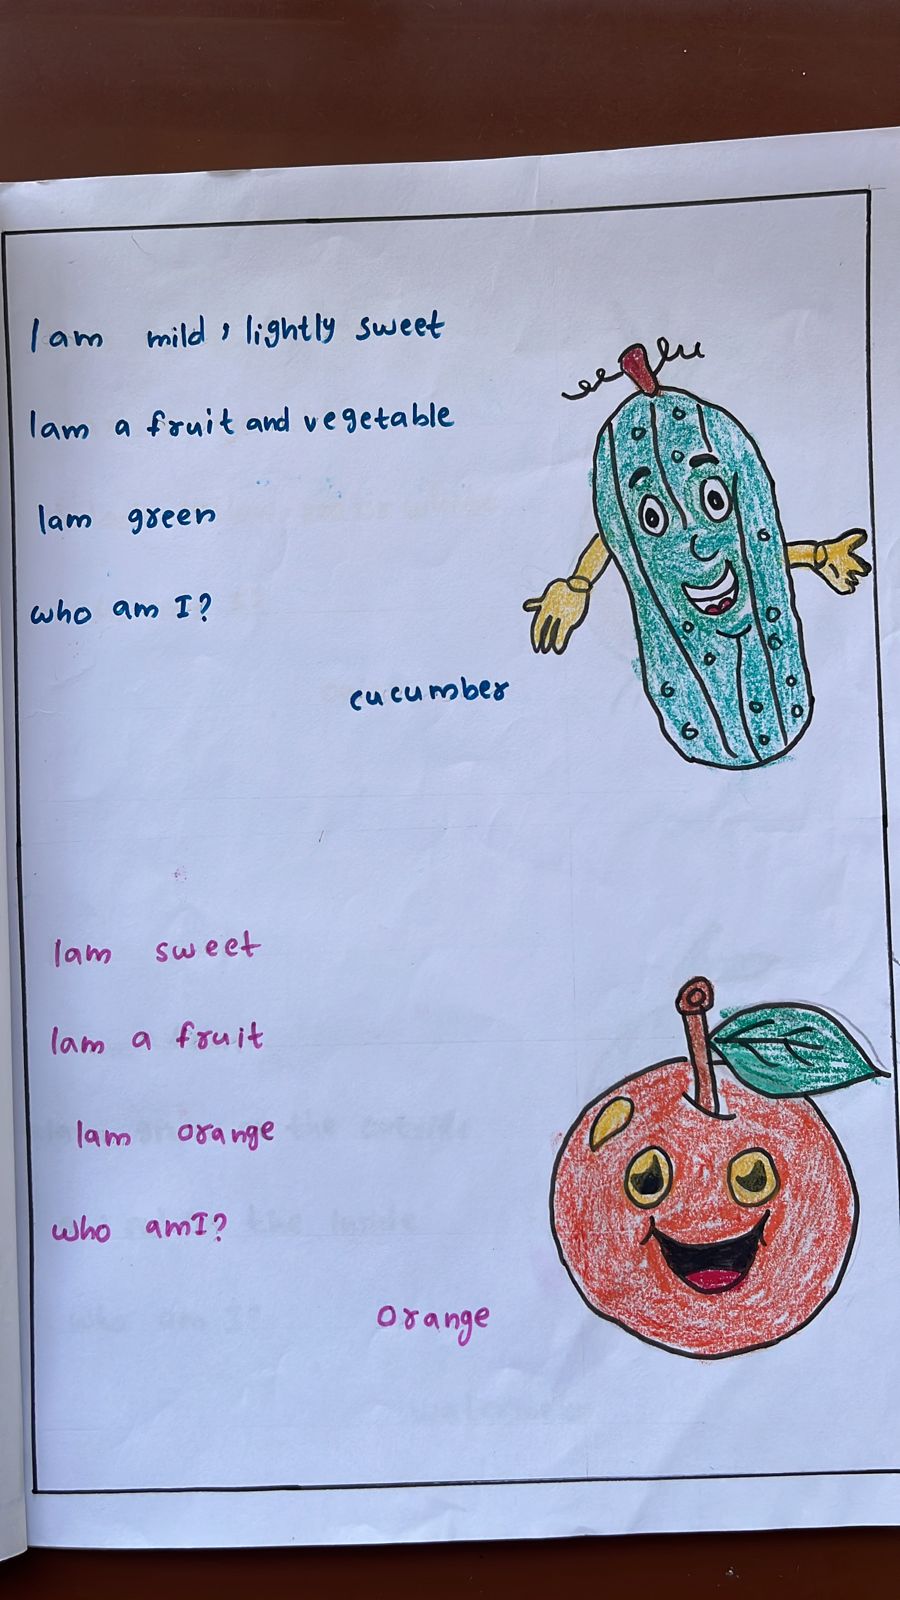 I am mild, lightly sweet
I am a fruit and vegetable
I am green
who am I?
cucumber
I am sweet
I am a fruit
I am orange
who am I?
orange